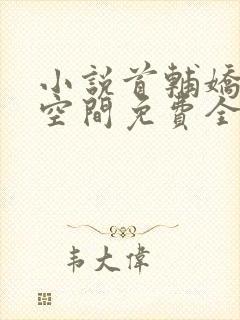 小說首輔嬌
空間免費全
韦大偉